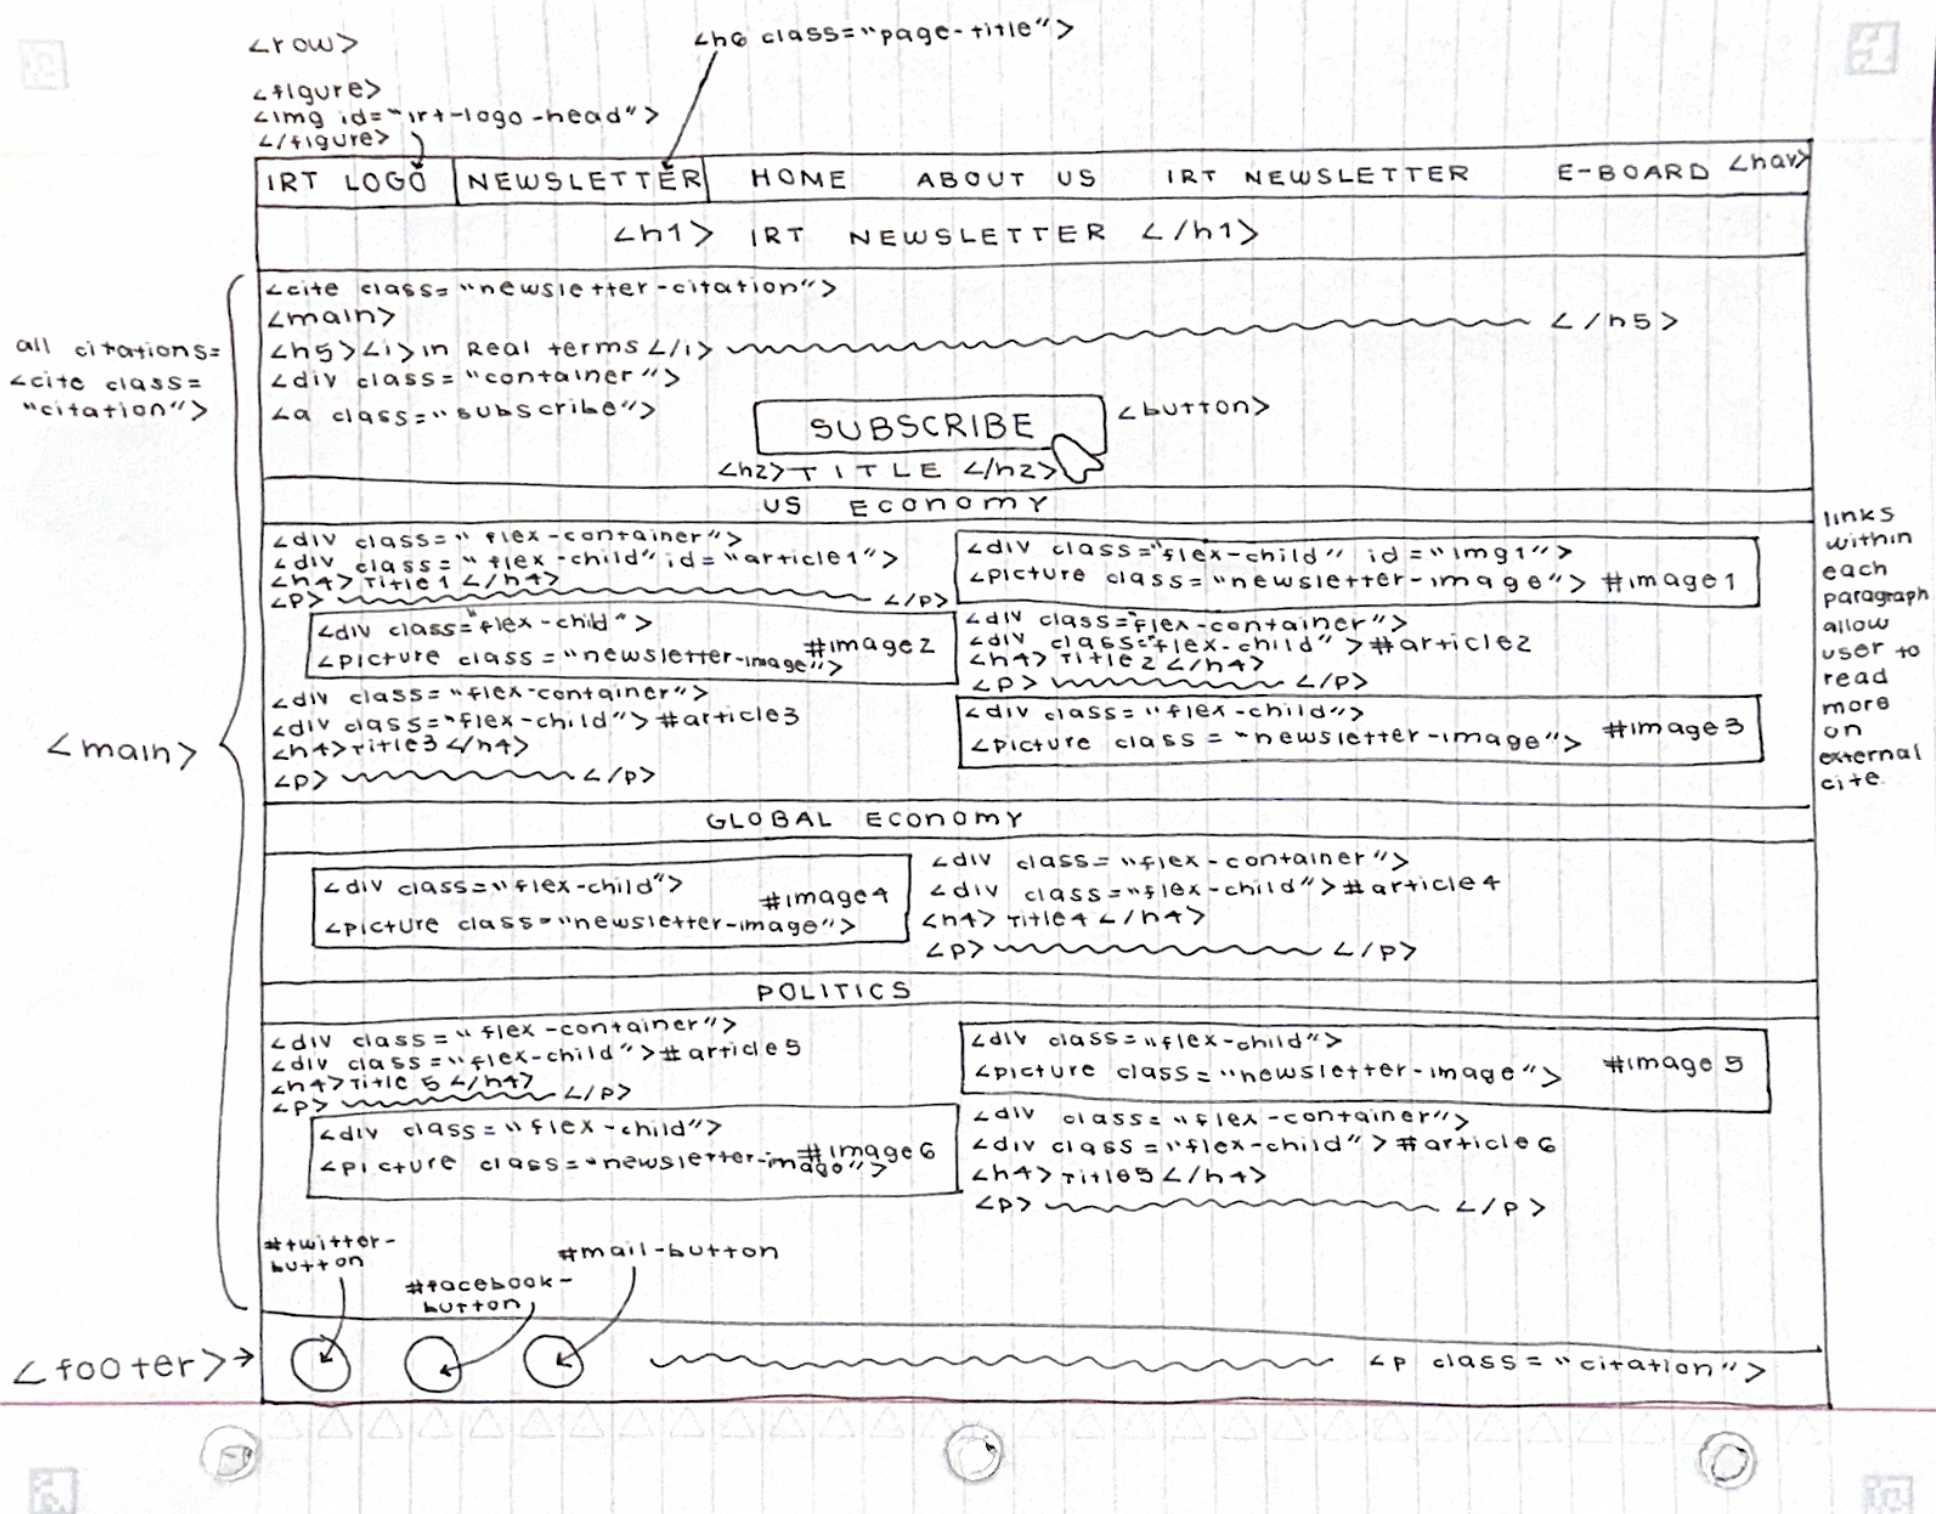 <row>
<h6 class="page-title">
<figure>
<img id="irt-logo-head">
</figure>
IRT LOGO
NEWSLETTER
HOME
ABOUT US
IRT NEWSLETTER
E-BOARD
<nav>
<h1> IRT NEWSLETTER </h1>
all citations=
<cite class=
"citation">
<main>
<cite class="newsletter-citation">
<main>
<h5><i>in Real terms</i> </h5>
<div class="container">
<a class="subscribe">
SUBSCRIBE
<button>
<h2>TITLE </h2>
US Economy
<div class="flex-container">
<div class="flex-child" id="article1">
<h4>Title1 </h4>
<p> </p>
<div class="flex-child" id="img1">
<picture class="newsletter-image"> #image1
<div class="flex-child">
#image2
<picture class="newsletter-image">
<div class="flex-container">
<div class="flex-child">#article2
<h4>Title2 </h4>
<p> </p>
<div class="flex-container">
<div class="flex-child">#article3
<h4>Title3 </h4>
<p> </p>
<div class="flex-child">
<picture class="newsletter-image"> #image3
links
within
each
paragraph
allow
user to
read
more
on
external
cite.
GLOBAL Economy
<div class="flex-child">
#image4
<picture class="newsletter-image">
<div class="flex-container">
<div class="flex-child">#article4
<h4>Title4 </h4>
<p> </p>
POLITICS
<div class="flex-container">
<div class="flex-child">#article5
<h4>Title 5 </h4>
<p> </p>
<div class="flex-child">
<picture class="newsletter-image"> #image 5
<div class="flex-child">
#image6
<picture class="newsletter-image">
<div class="flex-container">
<div class="flex-child">#article6
<h4>Title5 </h4>
<p> </p>
#twitter-
button
#facebook-
button
#mail-button
<footer>
<p class="citation">